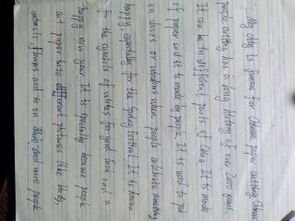 My city is famous for Chinese paper cutting. Chinese
paper cutting has a long history of over 2000 years.
It can be in different parts of China. It is made
of paper and it is made by people. It is used to put
on doors or windows when people celebrate something
happy, especially for the Spring Festival. It is known
for the symbols of wishes for good luck and a
happy new year. It is specially because people
cut paper into different pictures like birds,
animals, flowers and so on. more people